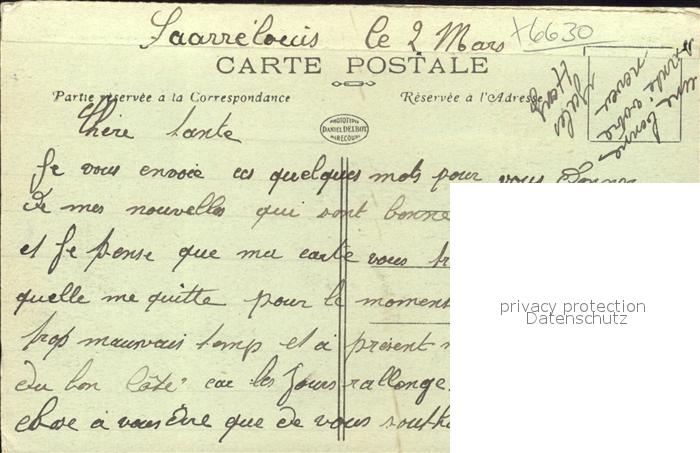 Saarrelouis le 2 Mars +6630
CARTE POSTALE
Partie réservée a la Correspondance
Réservée à l'Adresse
PHOTOTYPIE
DANIEL DELBOY
MIRECOURT
Chère tante
Je vous envoie ces quelques mots pour vous donner
de mes nouvelles qui sont bonne
et Je pense que ma carte vous tr
quelle me quitte pour le moment
trop mauvais temp et à présent
du bon côté car les Jours rallonge
chose à vous dire que de vous south
une bonne
votre
neveu
Jules
privacy protection
Datenschutz